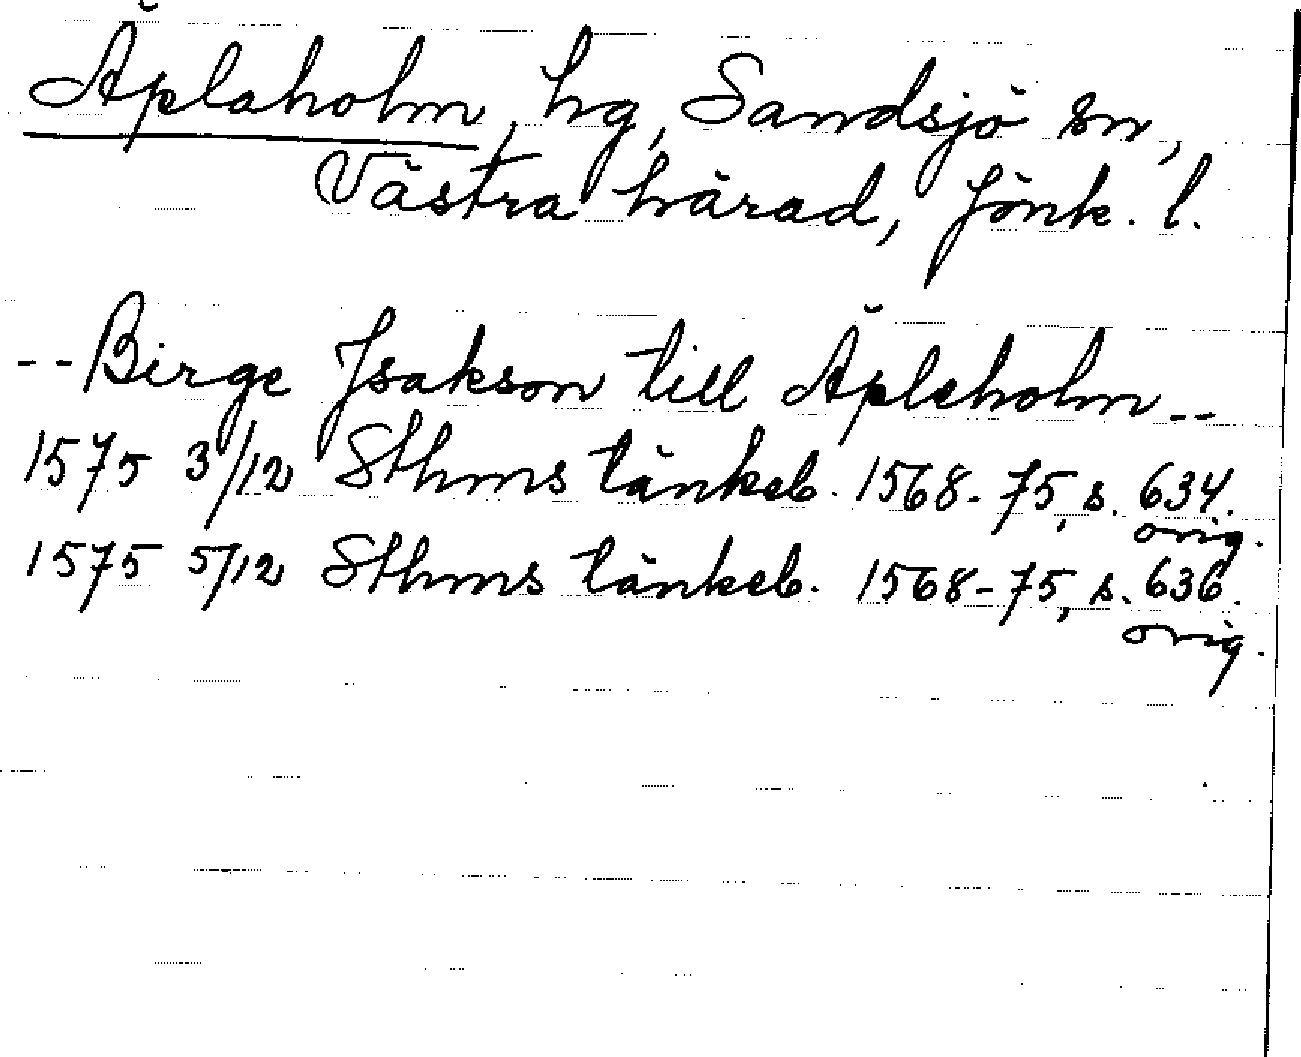 Äplaholm, hg, Sandsjö sn,
Västra härad, Jönk. l.
-- Birge Jsakson till Äpleholm --
1575 3/12 Sthms tänkeb. 1568-75, s. 634.
orig.
1575 5/12 Sthms tänkeb. 1568-75, s. 636.
orig.